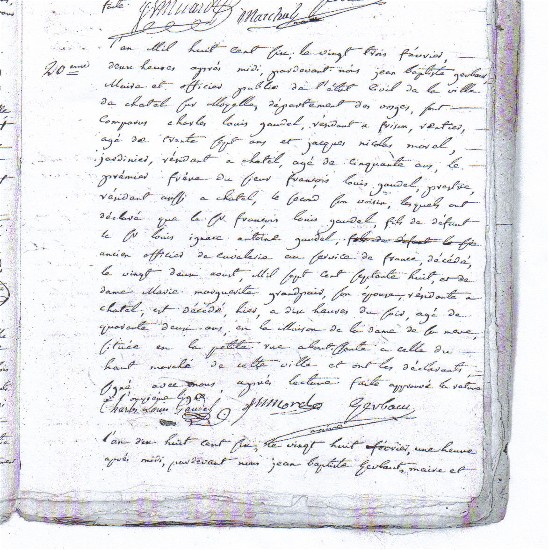 faite
J. Munard Marchal
l'an mil huit cent six, le vingt trois fevrier,
20eme deux heures après midi, pardevant nous jean baptiste gerbaut
Maire et officier public de l'état Civil de la ville
de chatel sur Moselle, département des vosges, sont
Comparus charles louis gaudel, résidant a frison, rentier,
agé de trente sept ans et jacques nicolas morel,
jardinier, résidant a chatel, agé de cinquante ans, le
prémier frère du sieur françois louis gaudel, prestre,
résidant aussi a chatel, le second son voisin, lesquels ont
déclaré que le Sr françois louis gaudel fils de défunt
le Sr louis ignace antoine gaudel, fils de défunt le
ancien officier de cavalerie au service de france, décédé,
le vingt deux aout mil sept cent septante huit, et de
dame Marie marguerite grandpair, son épouse, résidante a
chatel, est décédé, hier, a dix heures du soir, agé de
quarante deux ans, en la Maison de la dame de
située en la petite rue aboutissante a celle du
haut marché de cette ville et ont les déclarants
signé avec nous, après lecture faite approuvé la rature
Charles Louis Gaudel J N morel Gerbaut
maire
l'an dix huit cent six, le vingt huit fevrier, une heure
après midi, pardevant nous jean baptiste Gerbaut, maire et